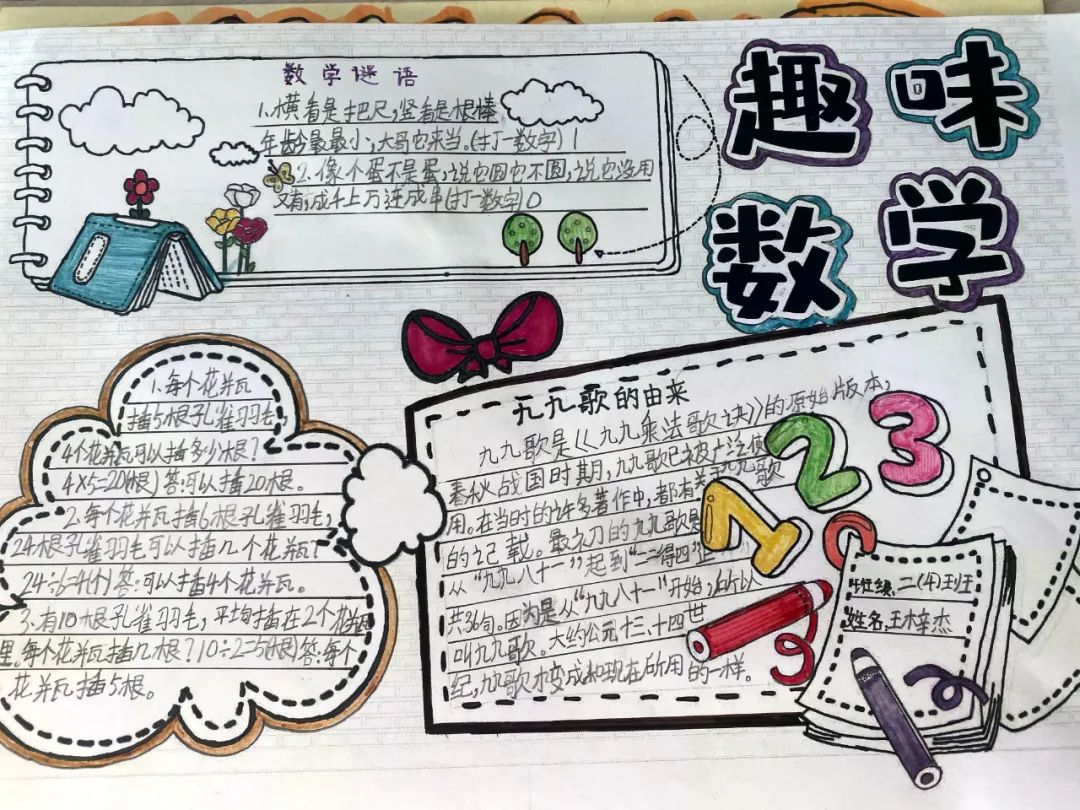 趣味
数学
数学谜语
1.横看是把尺,竖看是根棒
年龄最最小,大哥它来当。(打一数字) 1
2.像个蛋不是蛋,说它圆它不圆,说它没用
又有,成千上万连成串(打一数字) 0
1.每个花瓶瓦
插5根孔雀羽毛,
4个花瓶瓦可以插多少根?
4×5=20(根) 答:可以插20根。
2.每个花瓶瓦插6根孔雀羽毛,
24根孔雀羽毛可以插几个花瓶瓦?
24÷6=4(个) 答:可以插4个花瓶瓦。
3.有10根孔雀羽毛,平均插在2个花瓶
里,每个花瓶瓦插几根?10÷2=5(根) 答:每个
花瓶瓦插5根。
九九歌的由来
九九歌是《九九乘法歌诀》的原始版本,
春秋战国时期,九九歌已被广泛使
用。在当时的许多著作中,都有关于九九歌
的记载。最初的九九歌是
从“九九八十一”起到“二二得四”止
共36句。因为是从“九九八十一”开始,所以
叫九九歌。大约公元十三、十四世
纪,九九歌才变成和现在所用的一样。
1 2 3
班级:二(4)班
姓名:王梓杰